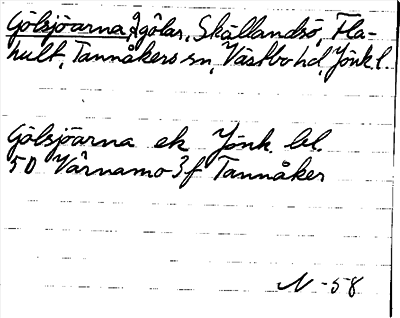 Gölsjöarna, 2 gölar, Skållandsö, Fla-
hult, Tannåkers sn, Västbo hd, Jönk. l.
Gölsjöarna ek Jönk. bl.
5D Värnamo 3f Tannåker
N -58